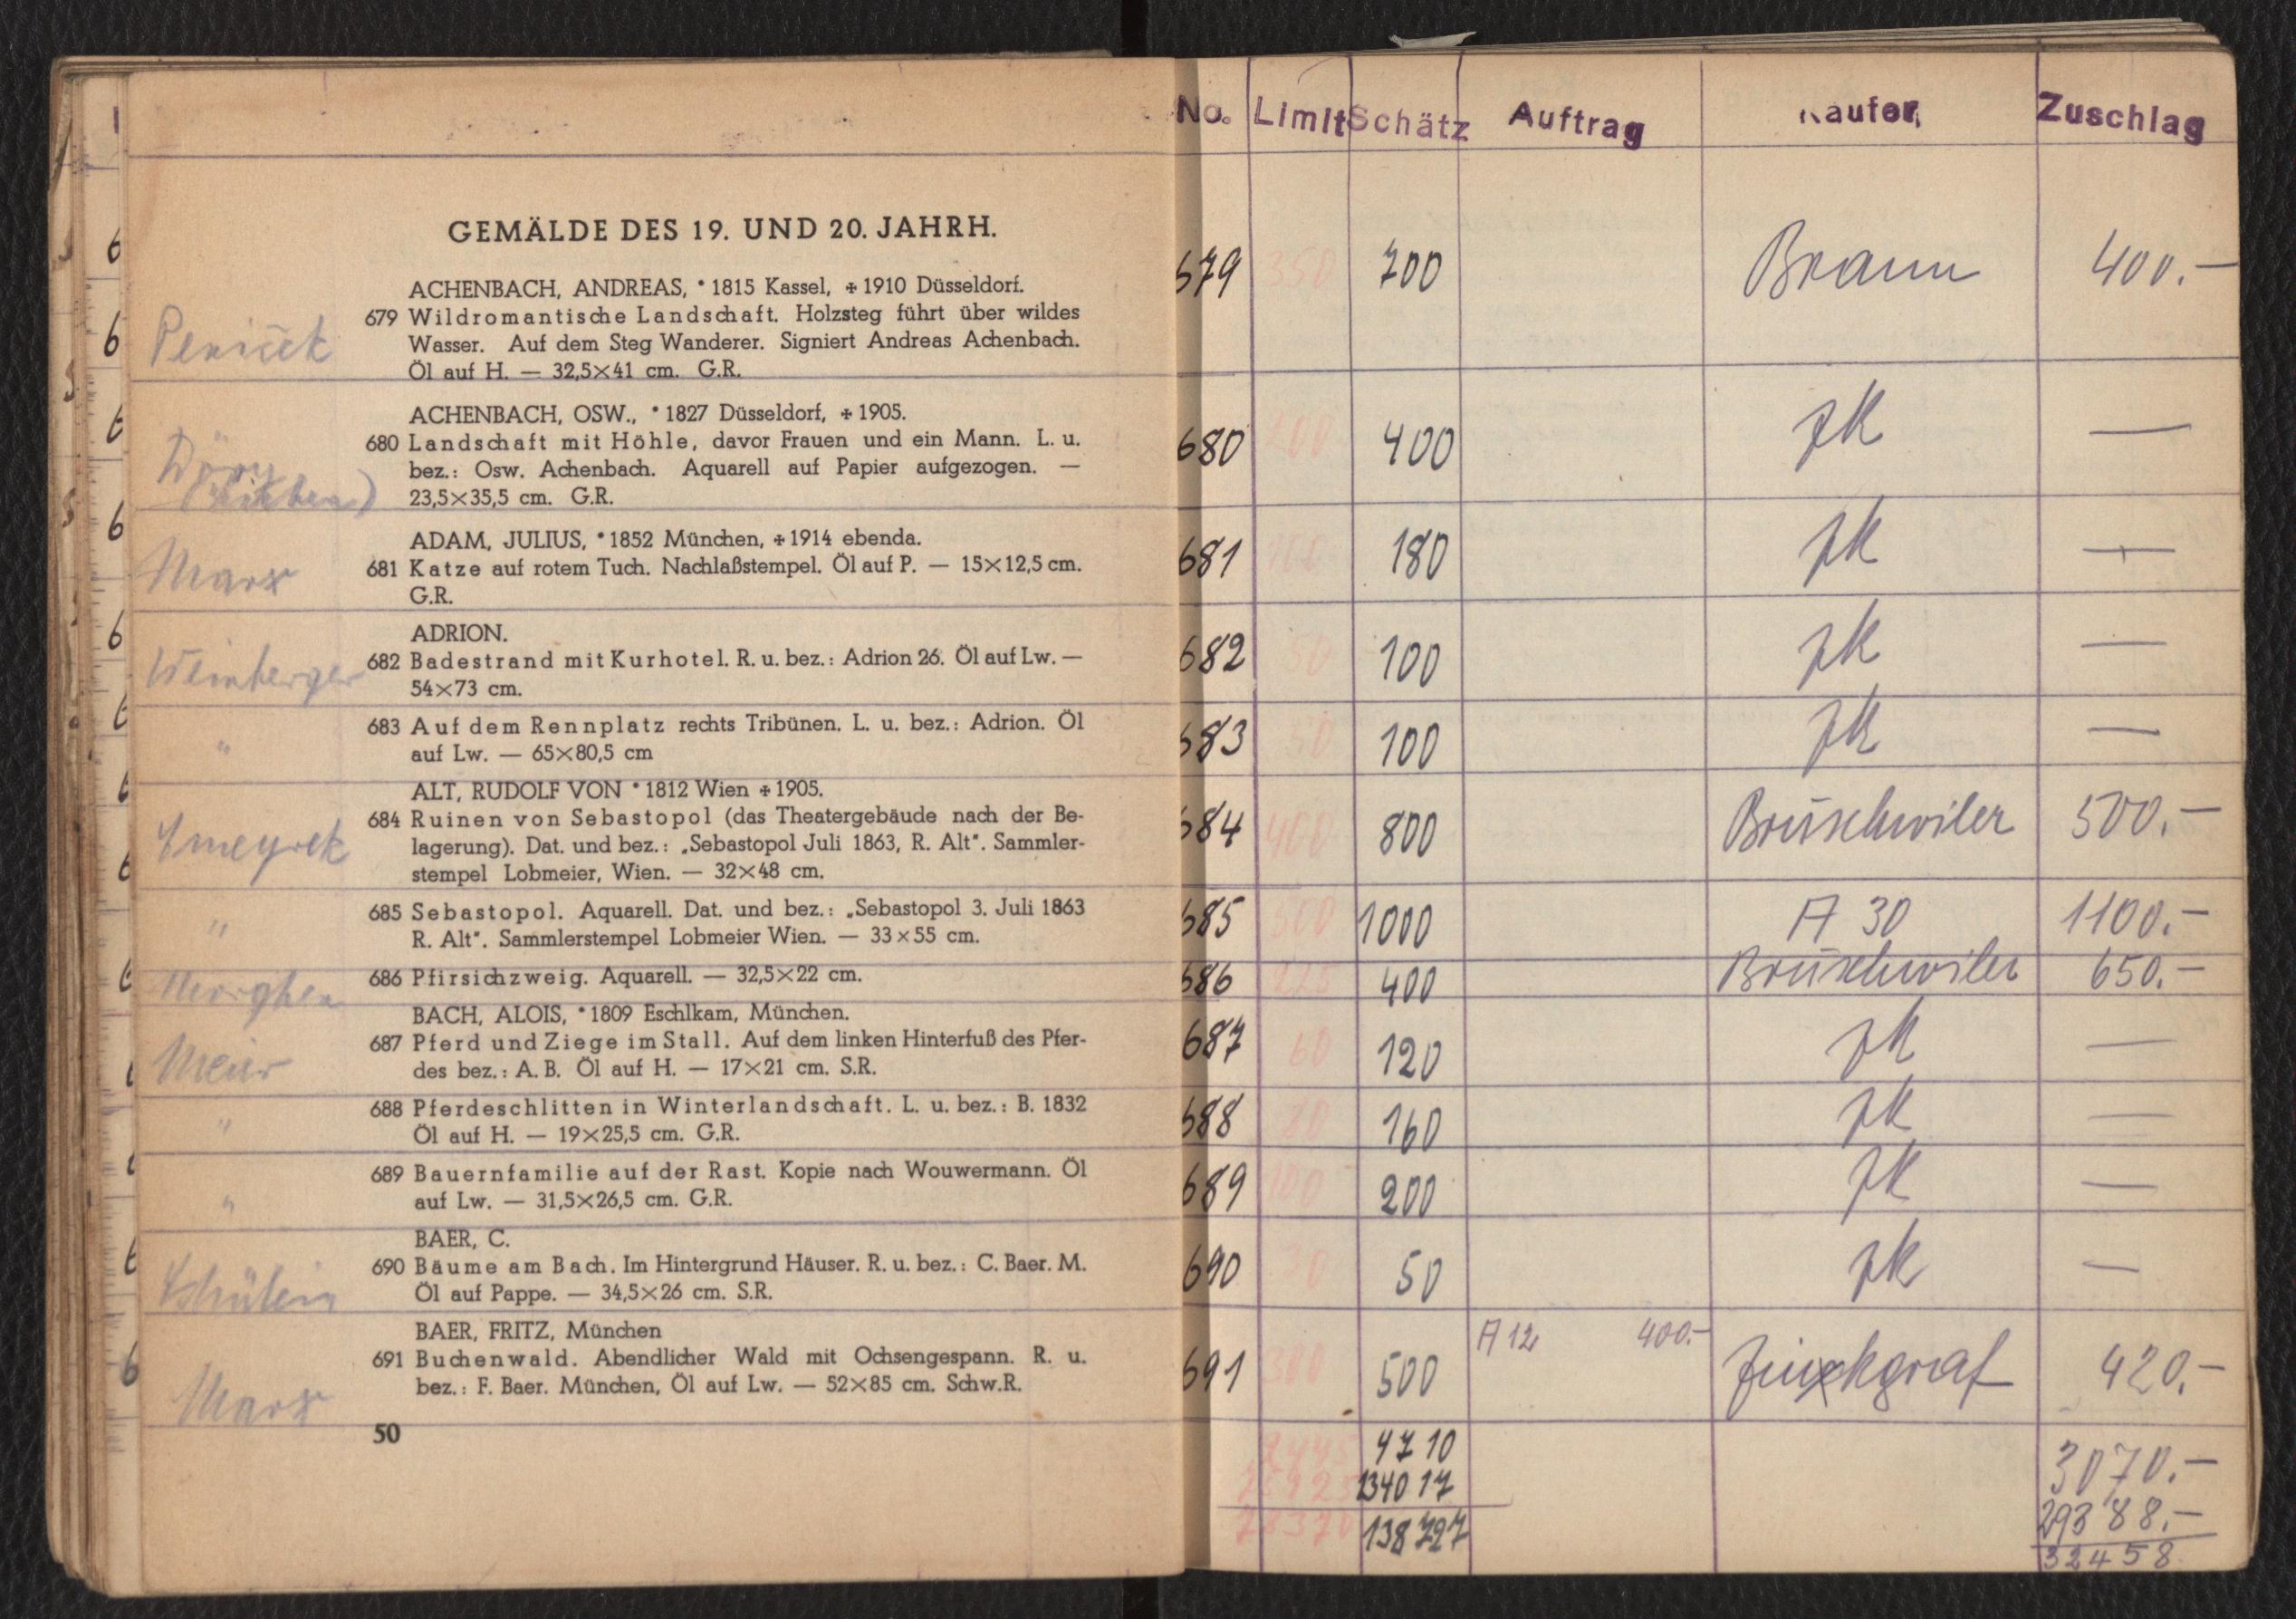 GEMÄLDE DES 19. UND 20. JAHRH.
ACHENBACH, ANDREAS, * 1815 Kassel, ✠ 1910 Düsseldorf.
679 Wildromantische Landschaft. Holzsteg führt über wildes
Wasser. Auf dem Steg Wanderer. Signiert Andreas Achenbach.
Öl auf H. — 32,5×41 cm. G.R.
ACHENBACH, OSW., * 1827 Düsseldorf, ✠ 1905.
680 Landschaft mit Höhle, davor Frauen und ein Mann. L. u.
bez.: Osw. Achenbach. Aquarell auf Papier aufgezogen. —
23,5×35,5 cm. G.R.
Marx
ADAM, JULIUS, * 1852 München, ✠ 1914 ebenda.
681 Katze auf rotem Tuch. Nachlaßstempel. Öl auf P. — 15×12,5 cm.
G.R.
Weinberger
ADRION.
682 Badestrand mit Kurhotel. R. u. bez.: Adrion 26. Öl auf Lw. —
54×73 cm.
"
683 Auf dem Rennplatz rechts Tribünen. L. u. bez.: Adrion. Öl
auf Lw. — 65×80,5 cm
ALT, RUDOLF VON * 1812 Wien ✠ 1905.
684 Ruinen von Sebastopol (das Theatergebäude nach der Be-
lagerung). Dat. und bez.: „Sebastopol Juli 1863, R. Alt". Sammler-
stempel Lobmeier, Wien. — 32×48 cm.
"
685 Sebastopol. Aquarell. Dat. und bez.: „Sebastopol 3. Juli 1863
R. Alt". Sammlerstempel Lobmeier Wien. — 33×55 cm.
686 Pfirsichzweig. Aquarell. — 32,5×22 cm.
BACH, ALOIS, * 1809 Eschlkam, München.
687 Pferd und Ziege im Stall. Auf dem linken Hinterfuß des Pfer-
des bez.: A. B. Öl auf H. — 17×21 cm. S.R.
"
688 Pferdeschlitten in Winterlandschaft. L. u. bez.: B. 1832
Öl auf H. — 19×25,5 cm. G.R.
"
689 Bauernfamilie auf der Rast. Kopie nach Wouwermann. Öl
auf Lw. — 31,5×26,5 cm. G.R.
BAER, C.
690 Bäume am Bach. Im Hintergrund Häuser. R. u. bez.: C. Baer. M.
Öl auf Pappe. — 34,5×26 cm. S.R.
BAER, FRITZ, München
691 Buchenwald. Abendlicher Wald mit Ochsengespann. R. u.
bez.: F. Baer. München, Öl auf Lw. — 52×85 cm. Schw.R.
Marx
50
No. Limit Schätz Auftrag Käufer, Zuschlag
679 350 700 Braun 400.—
680 200 400 zk —
681 100 180 zk —
682 50 100 zk —
683 50 100 zk —
684 400 800 Brüschwiler 500.—
685 500 1000 A 30 1100.—
686 225 400 Brüschwiler 650.—
687 60 120 zk —
688 zk 160 —
689 100 200 zk —
690 50 zk —
691 300 500 A 12 400.— Zinckgraf 420.—
4710 3070.—
134017 29388.—
138727 32458